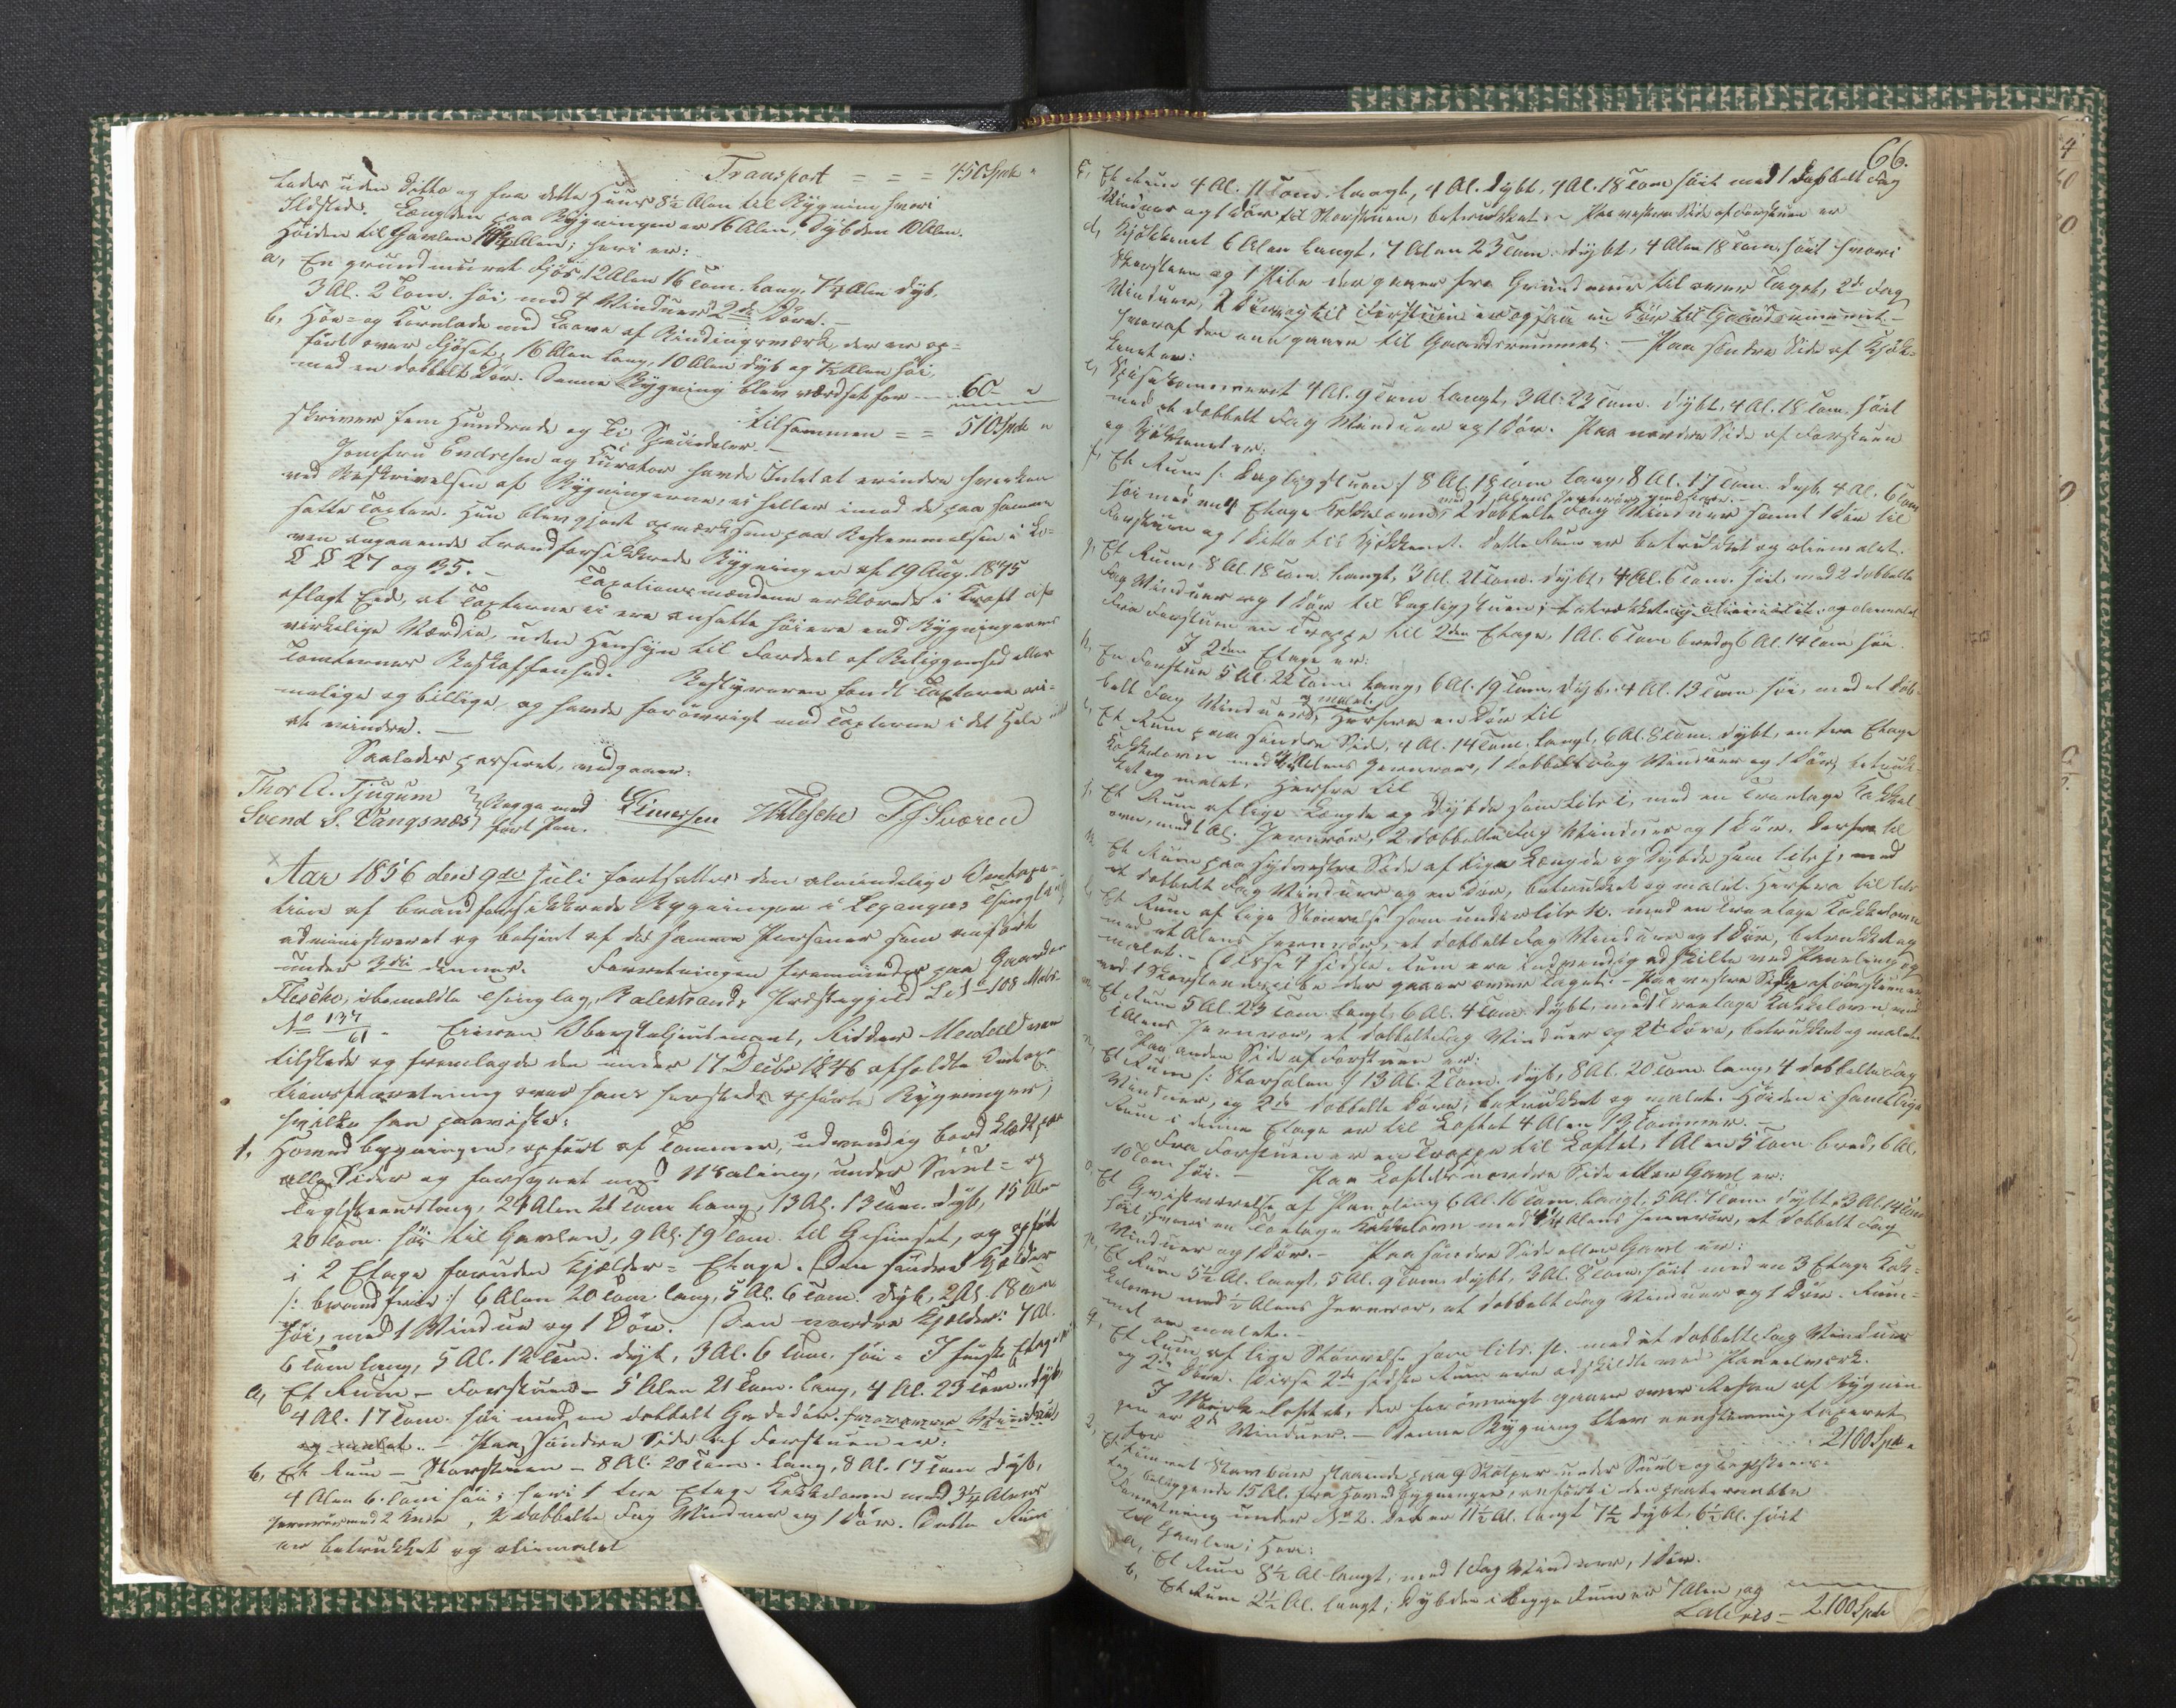 Transport = = = 450 Spd. "
lades uden ditto og fra dette Huus 8½ Alen til Bygning hvori
Ildsted. Længden paa Bygningen er 16 Alen, Dybden 10 Alen.
Høiden til Gavlen Alen; heri er:
a, En grundmuret Fjøs, 12 Alen 16 Tom. lang, 7¼ Alen dyb,
3 Al. 2 Tom. høi, med 4 Vinduer 2de Døre. –
b, Høe- og Kornlade med Laave af Bindingsværk, der er op-
ført over Fjøset, 16 Alen lang, 10 Alen dyb og 7½ Alen høi,
med en dobbelt Dør. Denne Bygning blev værdsat for – 60 "
Tilsammen = = 510 Spd. "
skriver fem Hundrede og Ti Speciedaler. –
Jomfru Endresen og Curator havde Intet at erindre hverken
ved Beskrivelsen af Bygningerne, ei heller imod de paa samme
satte Taxter. Hun blev gjort opmærksom paa Bestemmelsen i Lo-
ven angaaende Brandforsikkrede Bygninger af 19 Aug. 1845
§ § 27 og 35. – Taxationsmændene erklærede i Kraft af
aflagt Eed, at Taxterne ei ere ansatte høiere end Bygningernes
virkelige Værdie, uden Hensyn til Fordeel af Beliggenhed eller
Tomternes Beskaffenhed. Bestyreren fandt Taxterne ri-
melige og billige, og havde forøvrigt mod Taxterne i det Hele
at erindre. –
Saaledes passeret, vedgaaer:
Thor A. Tjugum
Svend S. Vangsnes } Begge med ført Pen.
Aar 1856 den 9de Juli fortsattes den almindelige Omtaxa-
tion af brandforsikkrede Bygninger i Leganger Thinglag
administreret og betjent af de samme Personer som anført
under 3die dennes. Forretningen fremmedes paa Gaarden
Flesche, ibemeldte Thinglag, Balestrands Præstegjeld
No 137/61. Eieren Oberstlieutenant, Ridder Medell var
tilstede og fremlagde den under 17 Decbr 1846 afholdte Omtaxa-
tionsforretning over hans herstedes opførte Bygninger,
hvilke han paaviste:
1, Hovedbygningen, opført af Tømmer, udvendig bordklædt paa
alle Sider og forsynet med Maling, under Suul- og
Teglsteenstag, 24 Alen 21 Tom lang, 13 Al. 13 Tom. dyb, 15 Alen
20 Tom. høi til Gavlen, 9 Al. 19 Tom. til Gesimset, og opført
i 2 Etage foruden Kjælder-Etage. Den søndre Kjælder
/: brandfrie :/ 6 Alen 20 Tom. lang, 5 Al. 6 Tom. dyb, 2 Al. 18 Tom
høi, med 1 Vindue og 1 Dør. Den nordre Kjælder: 7 Al.
6 Tom lang, 5 Al. 12 Tom. dyb, 3 Al. 6 Tom. høi. I første Etage er
a, Et Rum – Forstuen – 5 Alen 21 Tom. lang, 4 Al. 23 Tom. dyb
4 Al. 17 Tom. høi med en dobbelt Gadedør
og malet. – Paa søndre Side af Forstuen er:
b, Et Rum – Storstuen – 8 Al. 20 Tom. lang, 8 Al. 17 Tom dyb,
4 Alen 6 Tom høi; heri 1 tre Etage Kakkelovn med 3¼ Alens
Jernrør med 2 Knæ, 2 dobbelte Fag Vinduer og 1 Dør. Dette Rum
er betrukket og oliemalet
66.
c, Et Rum 4 Al. 11 Tom. langt, 4 Al. dybt, 4 Al. 18 Tom høit med 1 dobbelt Fag
Vinduer og 1 Dør til Storstuen, betrukket. – Paa vestre Side af Forstuen er
d, Kjøkkenet 6 Alen langt, 4 Alen 23 Tom. dybt, 4 Alen 18 Tom. høit hvori
Skorsteen og 1 Pibe der gaaer fra Grundmuur til over Taget, 2de Fag
Vinduer, 2 Døre til Forstuen
hvoraf den ene gaaer til Gaardsrummet. – Paa søndre Side af Kjøk-
kenet er:
e, Spisekammeret 4 Al. 9 Tom langt, 3 Al. 23 Tom. dybt, 4 Al. 18 Tom. høit
med et dobbelt Fag Vinduer og 1 Dør. Paa nordre Side af Forstuen
og Kjøkkenet er:
f, Et Rum /: Dagligstuen :/ 8 Al. 18 Tom lang, 8 Al. 17 Tom. dyb, 4 Al. 6 Tom
høi med en 3 Etage Kakkelovn, 2 dobbelte Fag Vinduer samt 1 Dør til
Forstuen og 1 ditto til Kjøkkenet. Dette Rum er betrukket og oliemalet.
g, Et Rum, 8 Al. 18 Tom. langt, 3 Al. 21 Tom. dybt, 4 Al. 6 Tom. høit, med 2 dobbelte
Fag Vinduer og 1 Dør til Dagligstuen, betrukket og oliemalet
Fra Forstuen en Trappe til 2den Etage, 1 Al. 6 Tom bred og 6 Al. 14 Tom høi.
I 2den Etage er:
h, En Forstue 5 Al. 22 Tom. lang, 6 Al. 19 Tom. dyb, 4 Al. 13 Tom høi, med et dob-
belt Fag Vinduer, og malet. Herfra en Dør til
i, Et Rum paa søndre Side, 4 Al. 14 Tom. langt, 6 Al. 8 Tom. dybt, en tre Etage
Kakkelovn med Alens Jernrør, 1 dobbelt Fag Vinduer og 1 Dør, betruk-
ket og malet. Herfra til
j, Et Rum af lige Længde og Dybde som Litr i, med en To etage Kakkel
ovn, med 1 Al. Jernrør, 2 dobbelte Fag Vinduer og 1 Dør. Herfra til
k, Et Rum paa sydvestre Side af lige Længde og Dybde som Litr j, med
et dobbelt Fag Vinduer og en Dør, betrukket og malet. Herfra til Litr
l, Et Rum af lige Størrelse som under Litr k. med en Treetage Kakkelovn
med et Alens Jernrør, et dobbelt Fag Vinduer og 1 Dør, betrukket og
malet. – Disse 4 sidste Rum ere indvendig adskilte ved Paneling og
med 1 Skorsteenspibe der gaaer over Taget. – Paa vestre Side af Forstuen er
m, Et Rum 5 Al. 23 Tom. langt, 6 Al. 4 Tom. dybt, med Treetage Kakkelovn med
1 Alens Jernrør, et dobbelt Fag Vinduer og 2de Døre, betrukket og malet.
Paa anden Side af Forstuen er:
n, Et Rum /: Storsalen :/ 13 Al. 2 Tom. dyb, 8 Al. 20 Tom. lang, 4 dobbelte Fag
Vinduer, og 2de dobbelte Døre, betrukket og malet. Høiden i samtlige
Rum i denne Etage er til Loftet 4 Alen 13 Tommer. –
Fra Forstuen er en Trappe til Loftet, 1 Alen 5 Tom. bred, 6 Al.
10 Tom høi. – Paa Loftets nordre Side eller Gavl er:
o, Et Gjesteværelse af Paneling 6 Al. 16 Tom. langt, 5 Al. 7 Tom. dybt, 3 Al. 14 Tom
høit, hvori en To etage Kakkelovn med Alens Jernrør, et dobbelt Fag
Vinduer og 1 Dør. – Paa søndre Side eller Gavl er:
p, Et Rum 5½ Al. langt, 5 Al. 9 Tom. dybt, 3 Al. 8 Tom. høit med en 3 Etage Kak-
kelovn med ½ Alens Jernrør, et dobbelt Fag Vinduer og 1 Dør. Rum-
met er malet. –
q, Et Rum af lige Størrelse som Litr. p. med et dobbelt Fag Vinduer
og 2de Døre. Disse 2de sidste Rum ere adskildte med Paneelværk.
I Mørkeloftet, der forøvrigt gaaer over Resten af Bygnin-
gen er 2de Vinduer. – Denne Bygning blev eenstemmig taxeret
for 2100 Spd. "
2, Et Stavbuur staaende paa 9 Stolper under Suul- og Teglsteens-
tag, beliggende 15 Al. fra Hovedbygningen, anført i den paaberaabte
Forretning under No 2. Det er 11½ Al. langt 7½ dybt, 6½ Al. høit
til Gavlen; Heri:
a, Et Rum 8½ Al langt, med 1 Fag Vinduer, 1 Dør.
b, Et Rum 2½ Al. langt; Dybden i begge Rum er 7 Alen, og
Lateris – 2100 Spd.